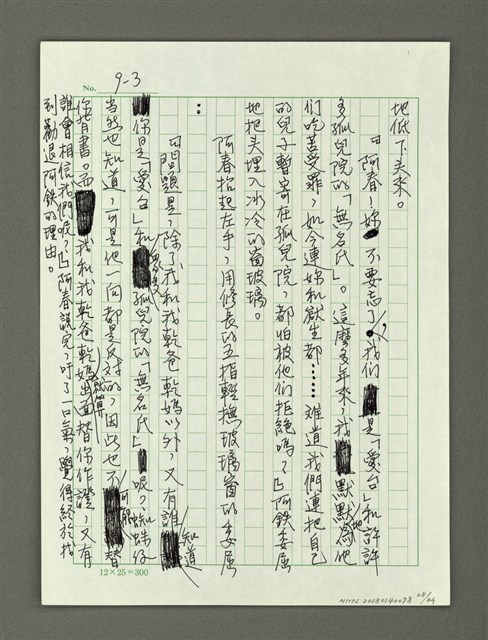 No. 9-3
地低下头來。
「阿春！妳不要忘了，我們是「愛台」和許許
多孤兒院的「無名氏」。這麼多年來，我默默地為他
們吃苦受罪，如今連妳和獄生都……難道我們連把自己
的兒子暫寄在孤兒院，都怕被他們拒絕嗎？」阿鉄委屈
地把头埋入冰冷的窗玻璃。
阿春抬起左手，用修長的五指輕撫玻璃窗的委屈
：
「問題是，除了我和我乾爸乾媽以外，又有誰知道
你是「愛台」和孤兒院的「無名氏」呢？蜘蛛仔
當然也知道，可是他一向都是反对的，因此也不可能替
你背書。而我和我乾爸乾媽就算出面替你作證，又有
誰會相信我們呢？」阿春說完，吁了一口氣，覺得終於找
到勸退阿鉄的理由。
12×25=300
NMTL20180140078 24/24